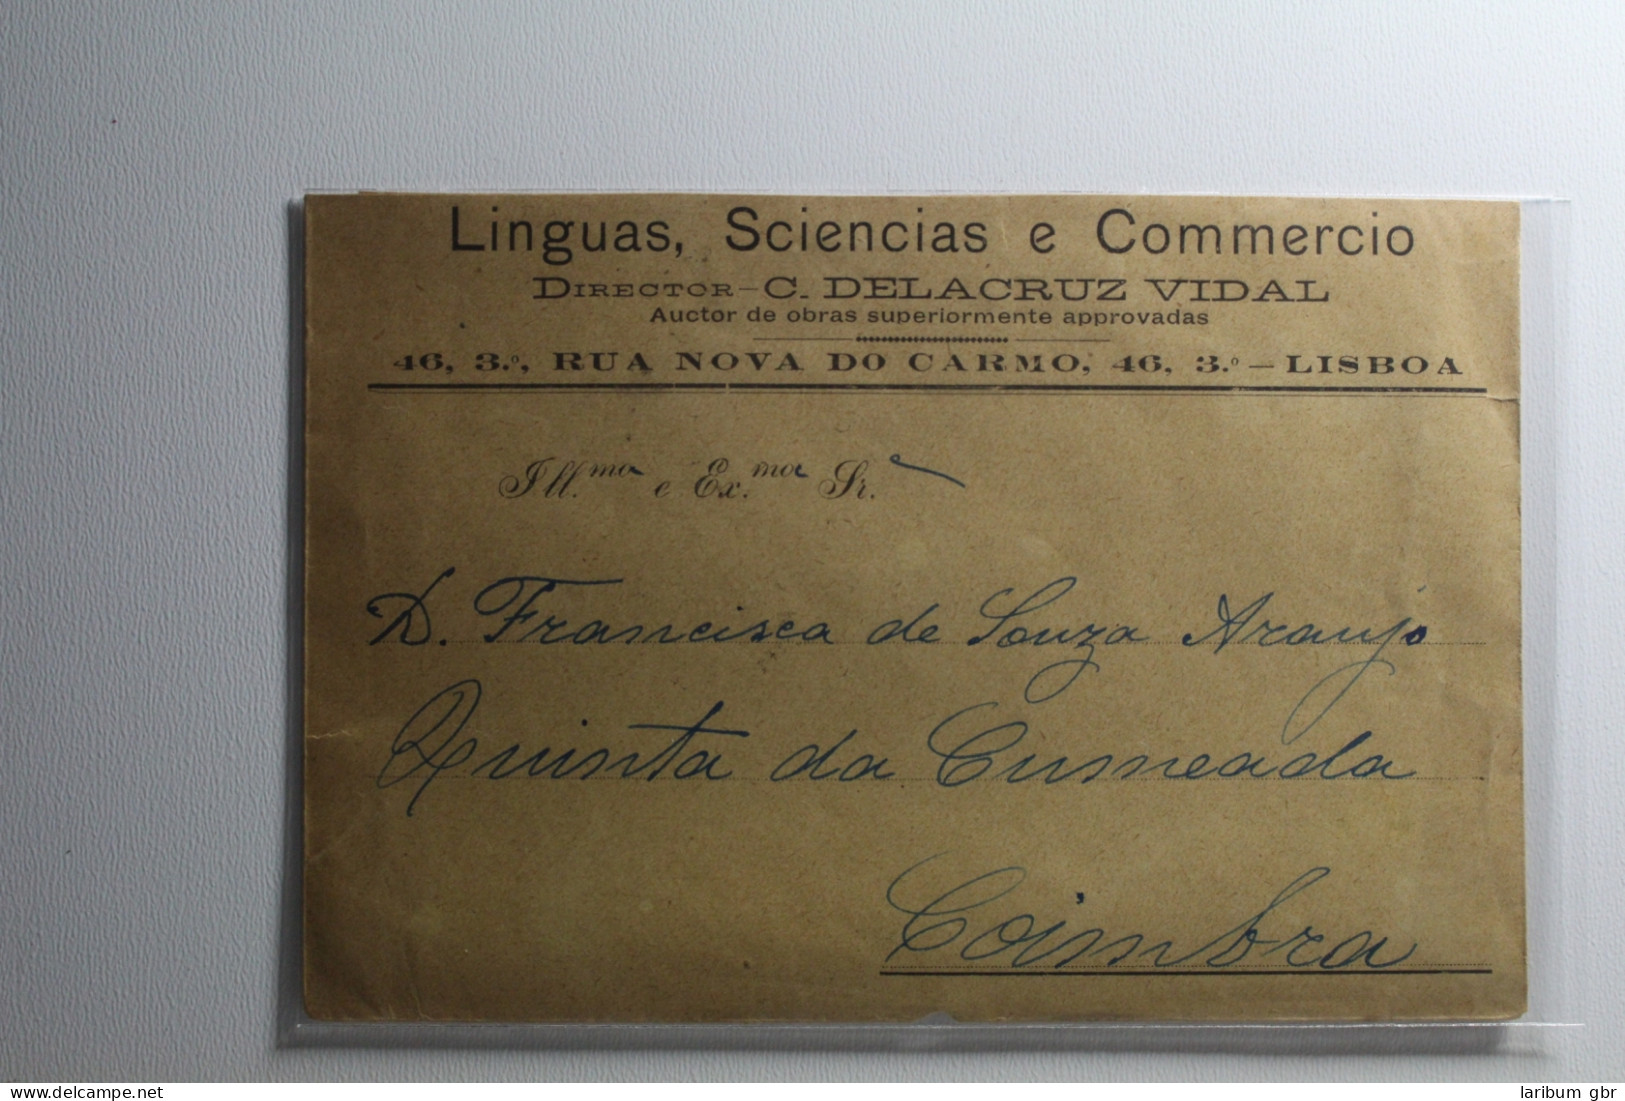 Linguas, Sciencias e Commercio
DIRECTOR—C. DELACRUZ VIDAL
Auctor de obras superiormente approvadas
46, 3.º, RUA NOVA DO CARMO, 46, 3.º—LISBOA
Ill.ma e Ex.ma Sr.a
D. Francisca de Souza Araujo
Quinta da Cumeada
Coimbra
www.delcampe.net
laribum gbr